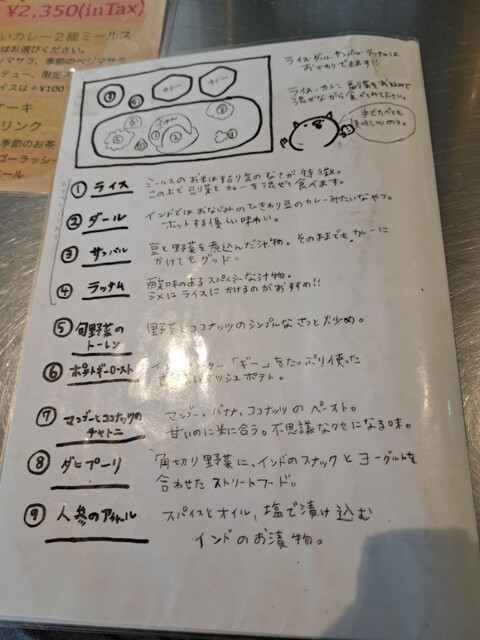 ¥2,350(in Tax)
いカレー2種ミールス
はお選びください。
マサラ、季節のベジマサラ
イスは+¥100
ーキ
リンク
季節のお茶
ゴーラッシー
ール
カレー
カレー
ライス・ダール・サンバル・ラッサムは
おかわりできます!!
ライス・カレー、副菜をお好みで
混ぜながら食べてみてください。
手でたべても
美味しいのヨ。
① ライス
ミールスのお米は粘り気のなさが特徴。
この上で副菜とカレーを混ぜて食べます。
② ダール
インドではおなじみのひきわり豆のカレーみたいなやつ。
ホッとする優しい味わい。
③ サンバル
豆と野菜を煮込んだ汁物。そのままでも、カレーに
かけてもグッド。
④ ラッサム
酸味のあるスパイシーな汁物。
シメにライスにかけるのがおすすめ!!
⑤ 旬野菜の
トーレン
野菜とココナッツのシンプルなさっと炒め。
⑥ ポテトギーロースト
「ギー」をたっぷり使った
マッシュポテト。
⑦ マンゴーとココナッツの
チャトニ
マンゴー、バナナ、ココナッツのペースト。
甘いのに米に合う。不思議なクセになる味。
⑧ ダヒプーリ
角切り野菜に、インドのスナックとヨーグルトを
合わせたストリートフード。
⑨ 人参のアチャール
スパイスとオイル、塩で漬け込む
インドのお漬物。